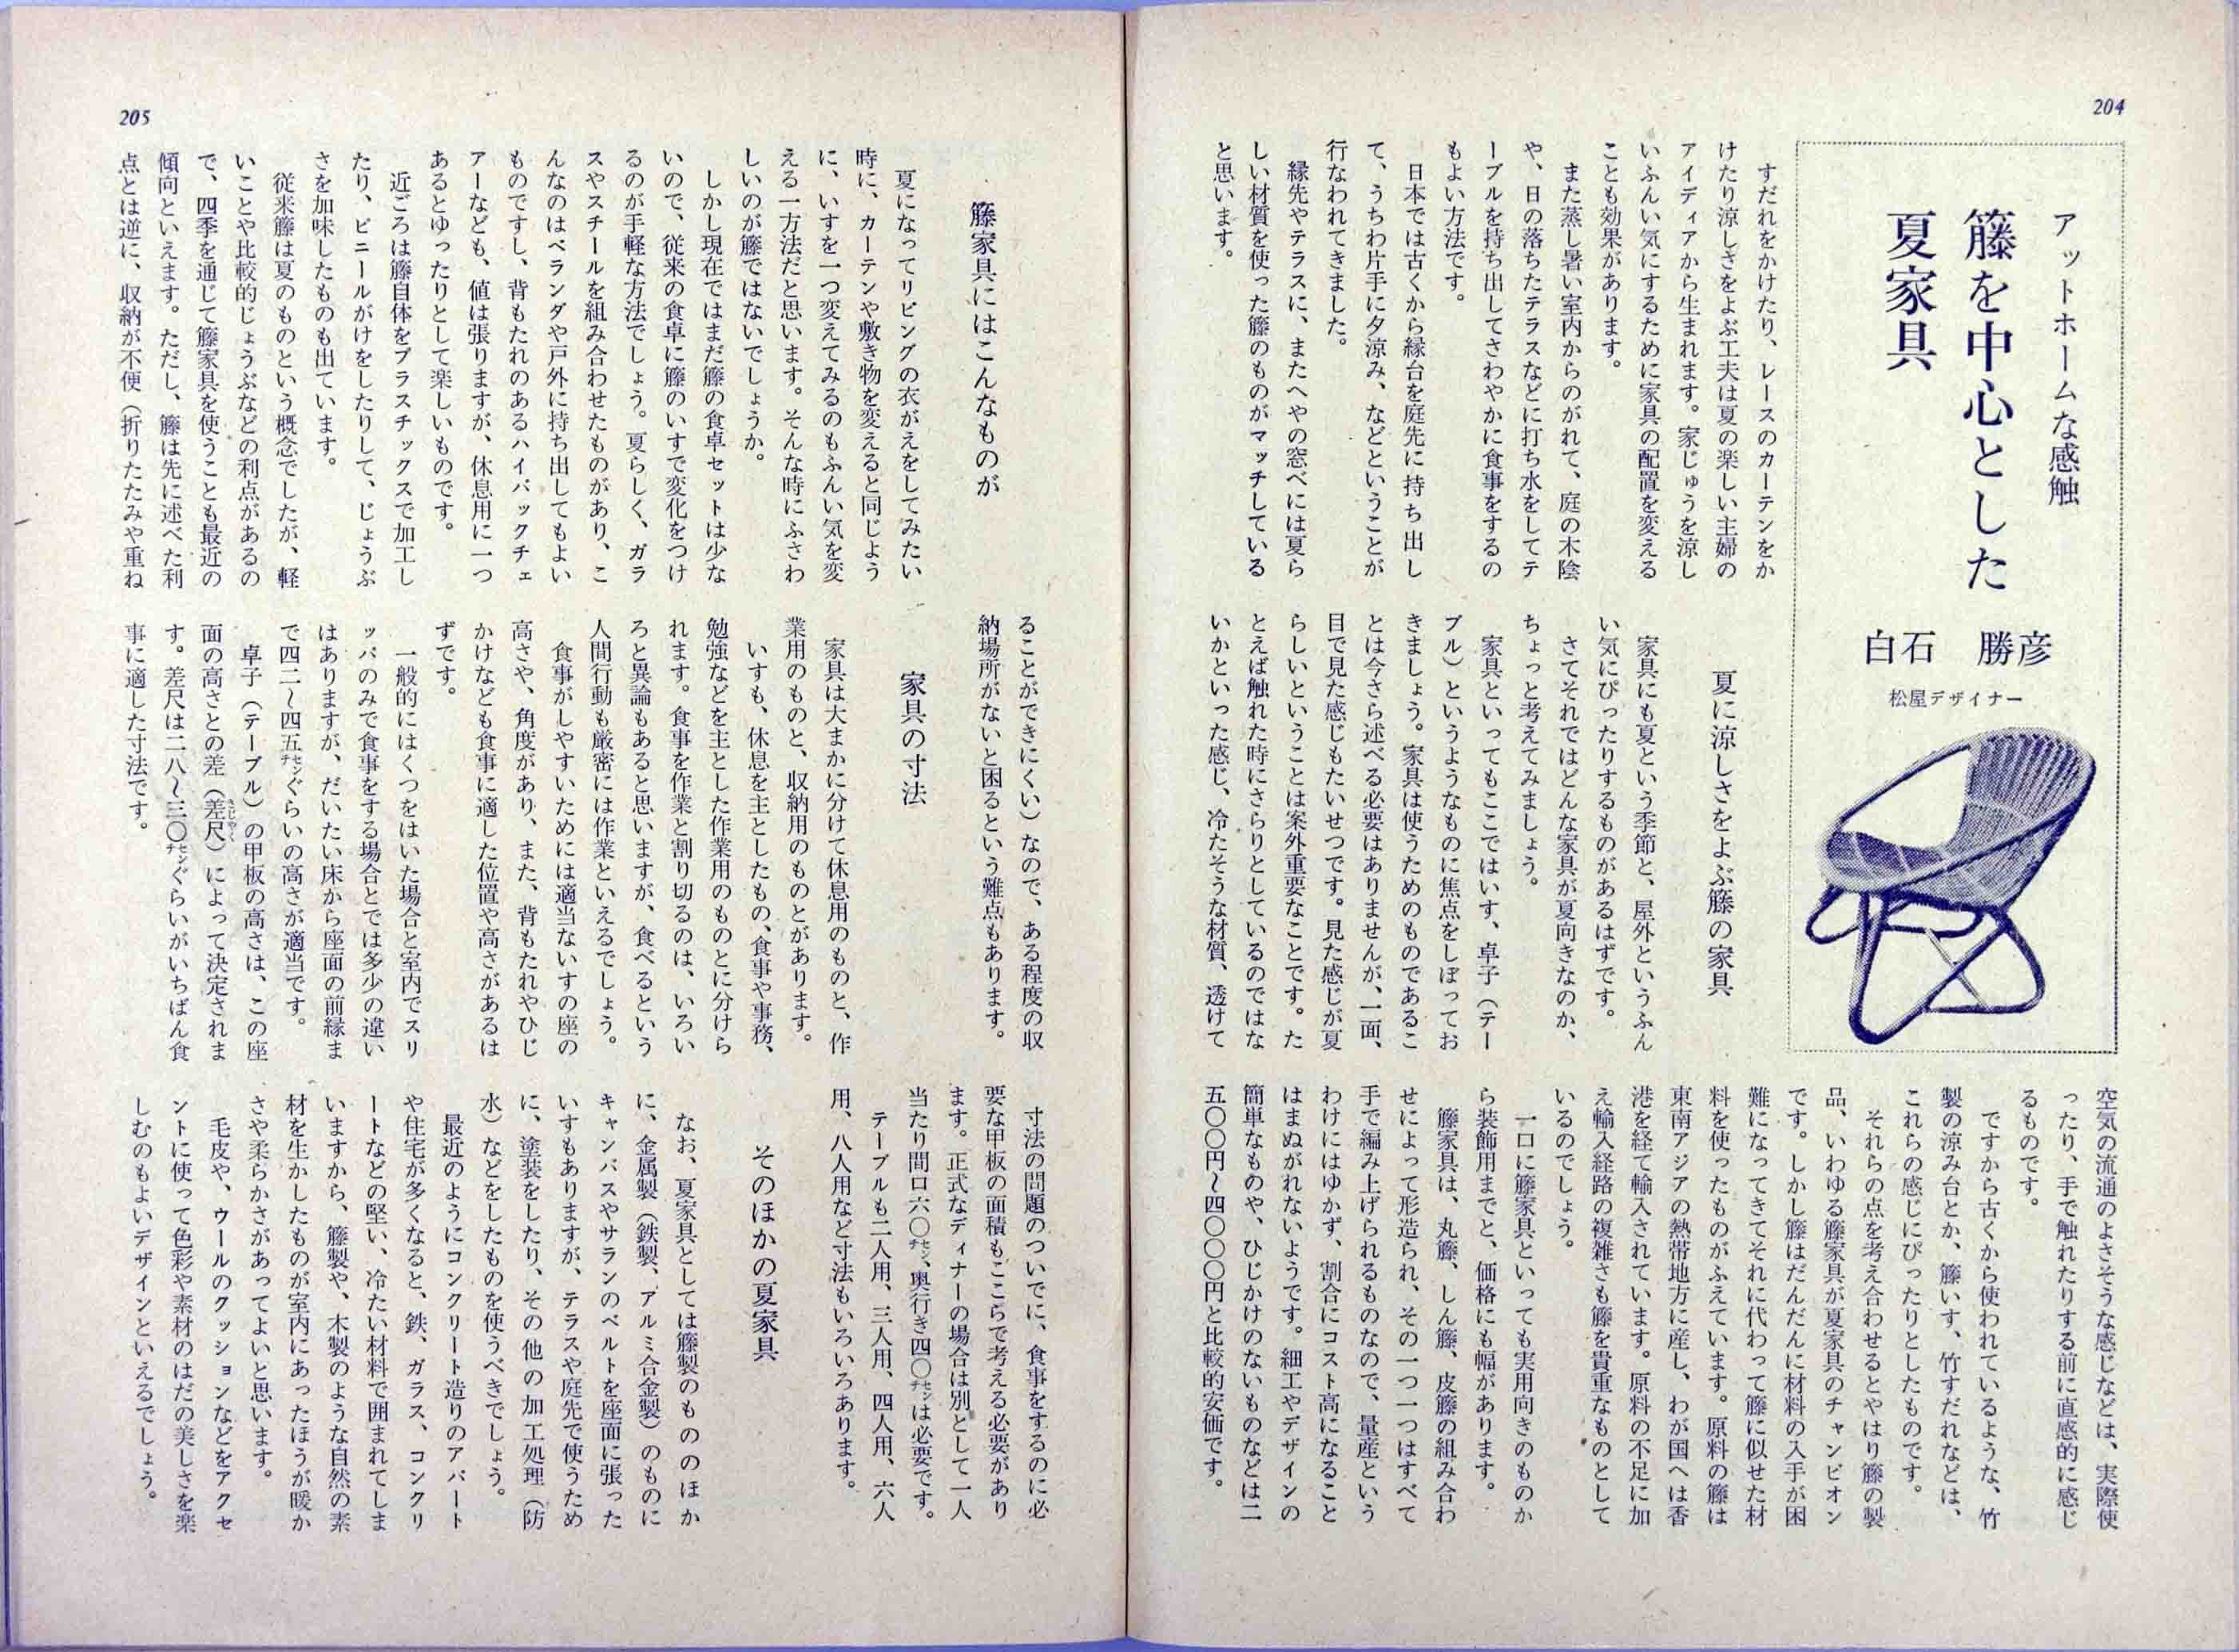 204
アットホームな感触
籐を中心とした
夏家具
白石　勝彦
松屋デザイナー
すだれをかけたり、レースのカーテンをか
けたり涼しさをよぶ工夫は夏の楽しい主婦の
アイディアから生まれます。家じゅうを涼し
いふんい気にするために家具の配置を変える
ことも効果があります。
また蒸し暑い室内からのがれて、庭の木陰
や、日の落ちたテラスなどに打ち水をしてテ
ーブルを持ち出してさわやかに食事をするの
もよい方法です。
日本では古くから縁台を庭先に持ち出し
て、うちわ片手に夕涼み、などということが
行なわれてきました。
縁先やテラスに、またへやの窓べには夏ら
しい材質を使った籐のものがマッチしている
と思います。
夏に涼しさをよぶ籐の家具
家具にも夏という季節と、屋外というふん
い気にぴったりするものがあるはずです。
さてそれではどんな家具が夏向きなのか、
ちょっと考えてみましょう。
家具といってもここではいす、卓子（テー
ブル）というようなものに焦点をしぼってお
きましょう。家具は使うためのものであるこ
とは今さら述べる必要はありませんが、一面、
目で見た感じもたいせつです。見た感じが夏
らしいということは案外重要なことです。た
とえば触れた時にさらりとしているのではな
いかといった感じ、冷たそうな材質、透けて
空気の流通のよさそうな感じなどは、実際使
ったり、手で触れたりする前に直感的に感じ
るものです。
ですから古くから使われているような、竹
製の涼み台とか、籐いす、竹すだれなどは、
これらの感じにぴったりとしたものです。
それらの点を考え合わせるとやはり籐の製
品、いわゆる籐家具が夏家具のチャンピオン
です。しかし籐はだんだんに材料の入手が困
難になってきてそれに代わって籐に似せた材
料を使ったものがふえています。原料の籐は
東南アジアの熱帯地方に産し、わが国へは香
港を経て輸入されています。原料の不足に加
え輸入経路の複雑さも籐を貴重なものとして
いるのでしょう。
一口に籐家具といっても実用向きのものか
ら装飾用までと、価格にも幅があります。
籐家具は、丸籐、しん籐、皮籐の組み合わ
せによって形造られ、その一つ一つはすべて
手で編み上げられるものなので、量産という
わけにはゆかず、割合にコスト高になること
はまぬがれないようです。細工やデザインの
簡単なものや、ひじかけのないものなどは二
五〇〇円〜四〇〇〇円と比較的安価です。
205
籐家具にはこんなものが
夏になってリビングの衣がえをしてみたい
時に、カーテンや敷き物を変えると同じよう
に、いすを一つ変えてみるのもふんい気を変
える一方法だと思います。そんな時にふさわ
しいのが籐ではないでしょうか。
しかし現在ではまだ籐の食卓セットは少な
いので、従来の食卓に籐のいすで変化をつけ
るのが手軽な方法でしょう。夏らしく、ガラ
スやスチールを組み合わせたものがあり、こ
んなのはベランダや戸外に持ち出してもよい
ものですし、背もたれのあるハイバックチェ
アーなども、値は張りますが、休息用に一つ
あるとゆったりとして楽しいものです。
近ごろは籐自体をプラスチックスで加工し
たり、ビニールがけをしたりして、じょうぶ
さを加味したものも出ています。
従来籐は夏のものという概念でしたが、軽
いことや比較的じょうぶなどの利点があるの
で、四季を通じて籐家具を使うことも最近の
傾向といえます。ただし、籐は先に述べた利
点とは逆に、収納が不便（折りたたみや重ね
ることができにくい）なので、ある程度の収
納場所がないと困るという難点もあります。
家具の寸法
家具は大まかに分けて休息用のものと、作
業用のものと、収納用のものとがあります。
いすも、休息を主としたもの、食事や事務、
勉強などを主とした作業用のものとに分けら
れます。食事を作業と割り切るのは、いろい
ろと異論もあると思いますが、食べるという
人間行動も厳密には作業といえるでしょう。
食事がしやすいためには適当ないすの座の
高さや、角度があり、また、背もたれやひじ
かけなども食事に適した位置や高さがあるは
ずです。
一般的にはくつをはいた場合と室内でスリ
ッパのみで食事をする場合とでは多少の違い
はありますが、だいたい床から座面の前縁ま
で四二〜四五センチぐらいの高さが適当です。
卓子（テーブル）の甲板の高さは、この座
面の高さとの差（差尺さじゃく）によって決定されま
す。差尺は二八〜三〇センチぐらいがいちばん食
事に適した寸法です。
寸法の問題のついでに、食事をするのに必
要な甲板の面積もここらで考える必要があり
ます。正式なディナーの場合は別として一人
当たり間口六〇センチ、奥行き四〇センチは必要です。
テーブルも二人用、三人用、四人用、六人
用、八人用など寸法もいろいろあります。
そのほかの夏家具
なお、夏家具としては籐製のもののほか
に、金属製（鉄製、アルミ合金製）のものに
キャンバスやサランのベルトを座面に張った
いすもありますが、テラスや庭先で使うため
に、塗装をしたり、その他の加工処理（防
水）などをしたものを使うべきでしょう。
最近のようにコンクリート造りのアパート
や住宅が多くなると、鉄、ガラス、コンクリ
ートなどの堅い、冷たい材料で囲まれてしま
いますから、籐製や、木製のような自然の素
材を生かしたものが室内にあったほうが暖か
さや柔らかさがあってよいと思います。
毛皮や、ウールのクッションなどをアクセ
ントに使って色彩や素材のはだの美しさを楽
しむのもよいデザインといえるでしょう。